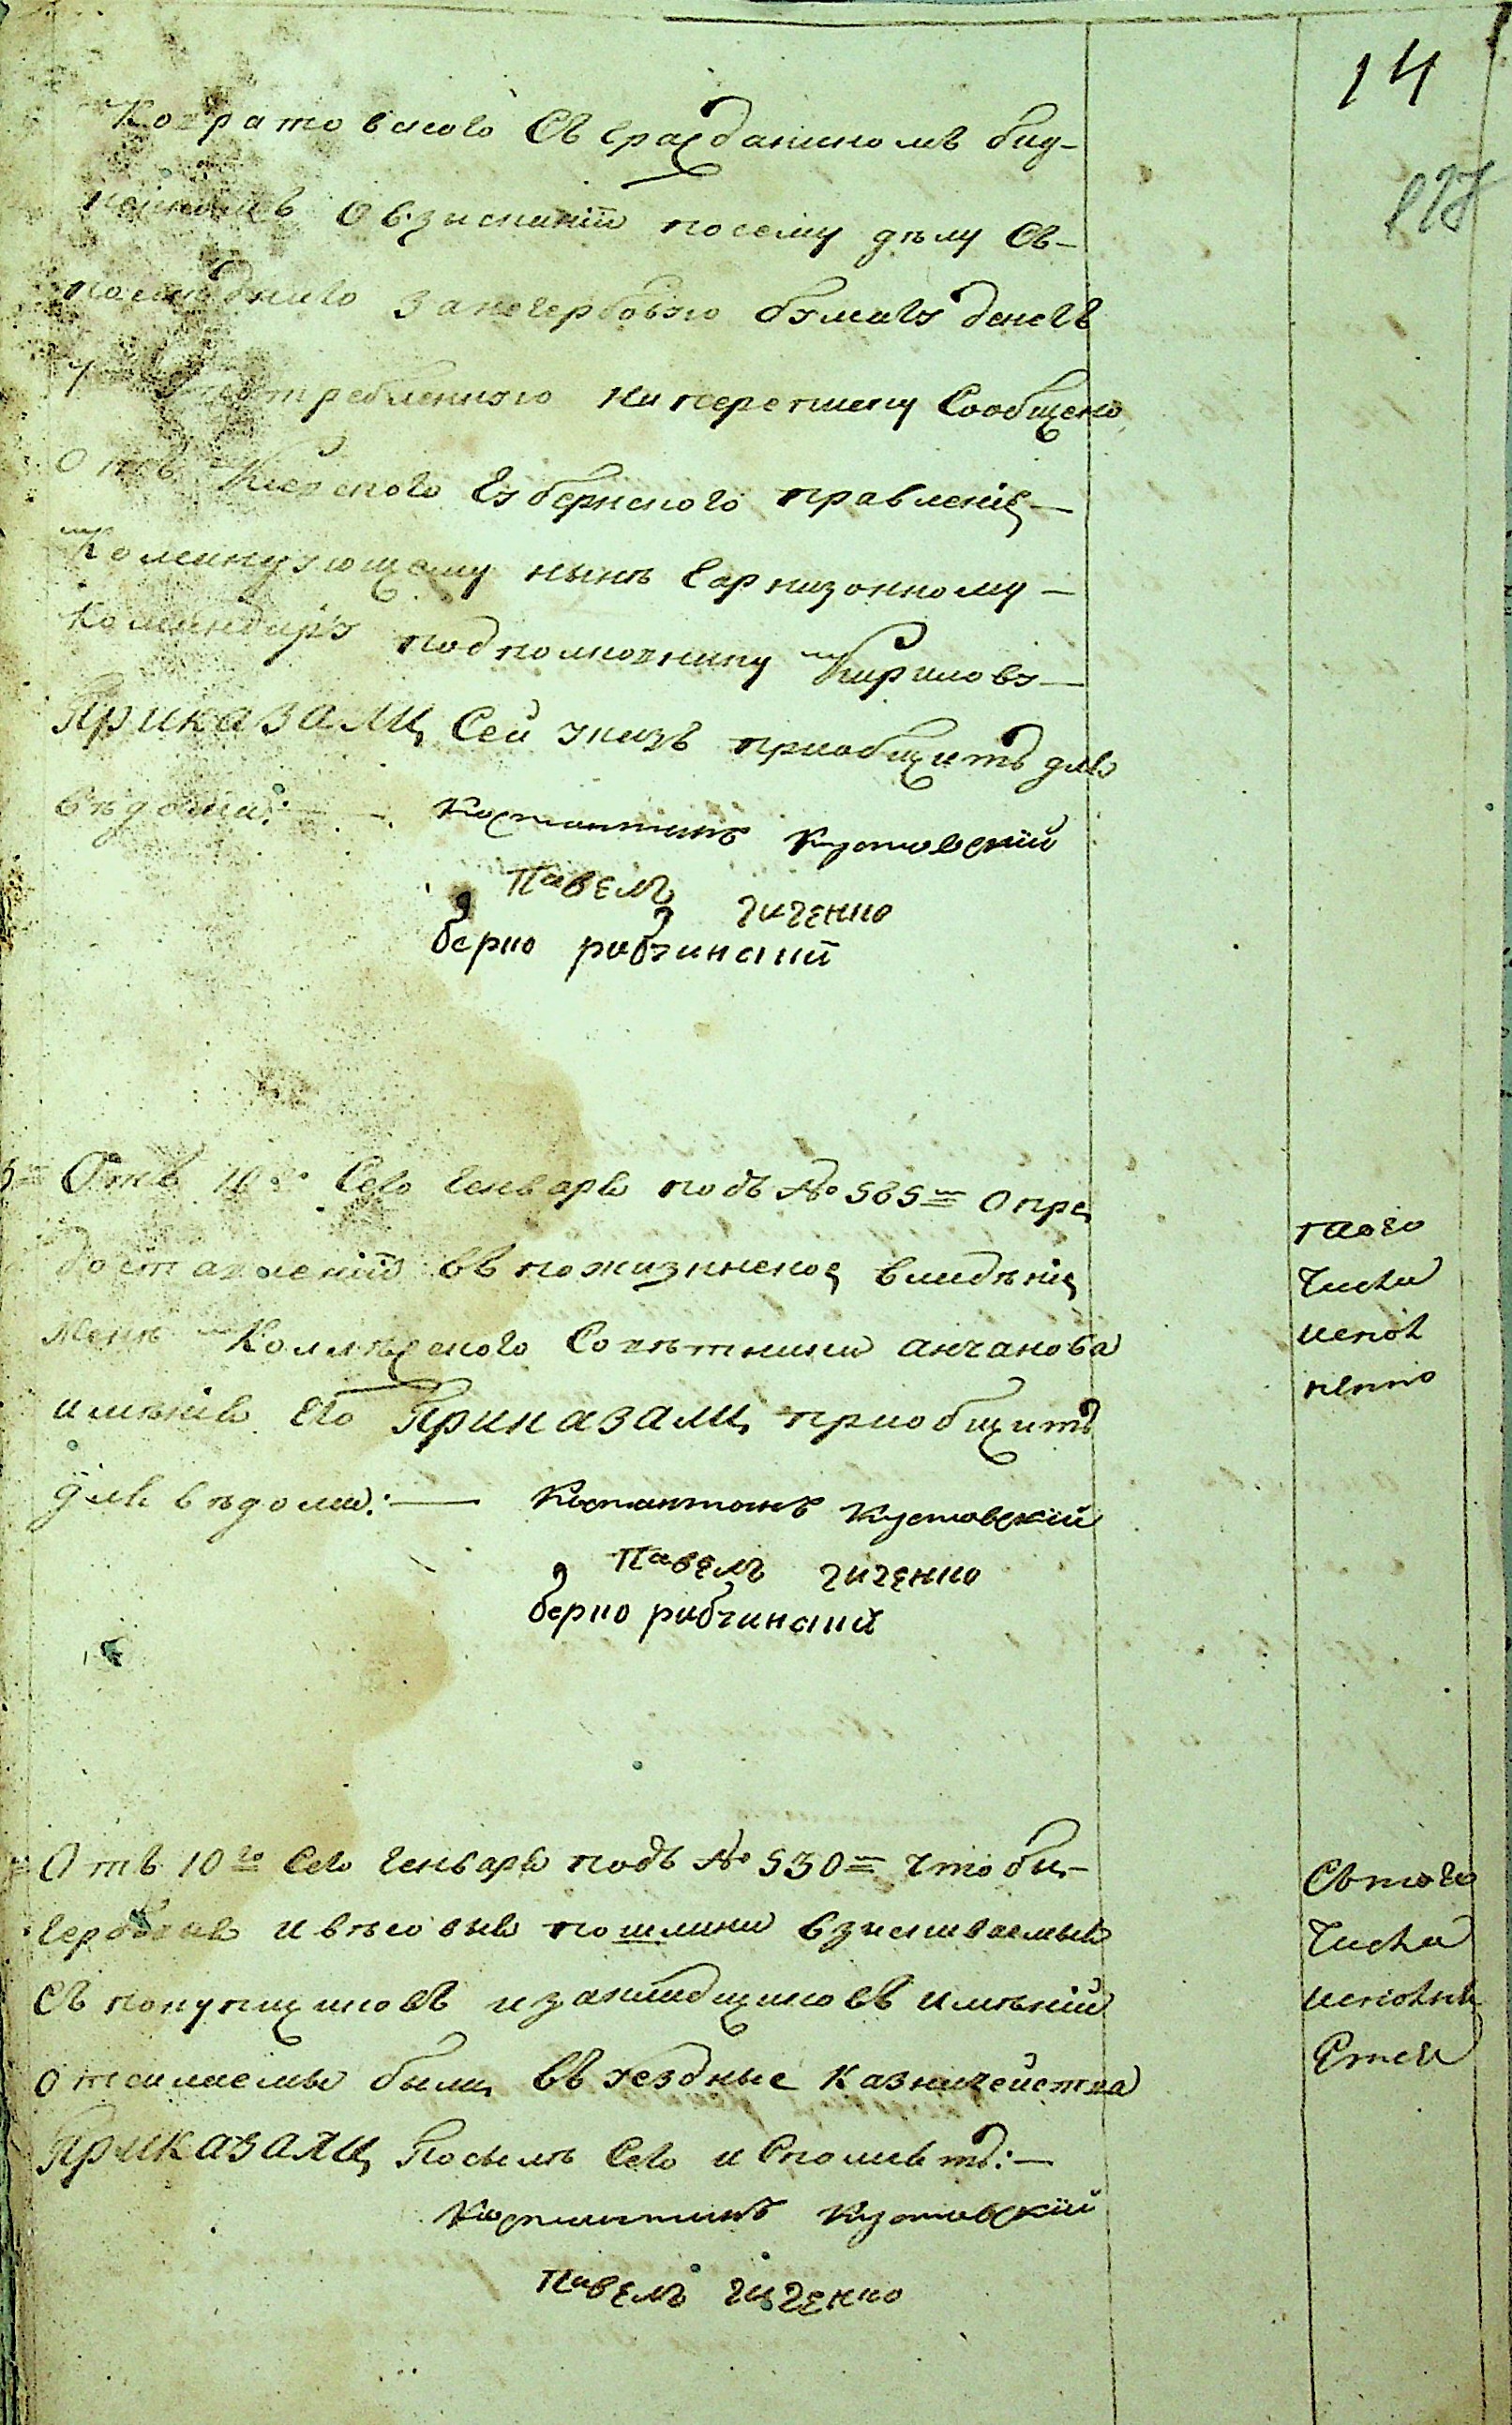 14
Кондратовского Съ гражданиномъ бид-
овзискании посему делу Съ-
последнего за негербовую бумагу денегъ
употребленную на переписку Сообщено
отъ Киевского Губернского правления
Командующему ныне Гарнизонному
Командиру подполковнику Кирилову
Приказали Сей указъ приобщить для
ведома:
Костантинъ Кустовский
Павелъ Чиченко
берко рабчинский
Отъ 10го Сего Генваря подъ № 585м Опре
доставлении въ пожизненное владение
жене Коллежского Советника анчанова
имения Его Приказали приобщить
для ведома:
Костантинъ Кустовский
Павелъ Чиченко
берко рабчинский
того
Числа
испол
нено
Отъ 10го Сего Генваря подъ № 530м чтобы
гербовые и весовые пошлины взискиваемые
Съ покупщиковъ изакладщиковъ имений
отсилаемы были въ уездные казначейства
Приказали Посылъ Сего и Сполнить:
Костантинъ Кустовский
Павелъ Чиченко
Съ того
Числа
исполне